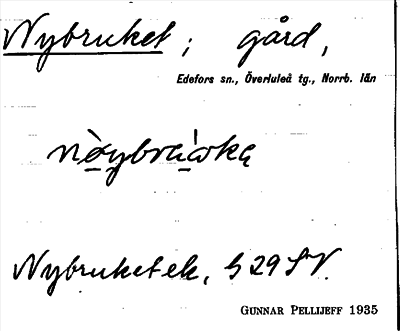 Nybruket ; gård,
Edefors sn., Överluleå tg., Norrb. län
Nybruket ek, 529 SV.
GUNNAR PELLIJEFF 1935